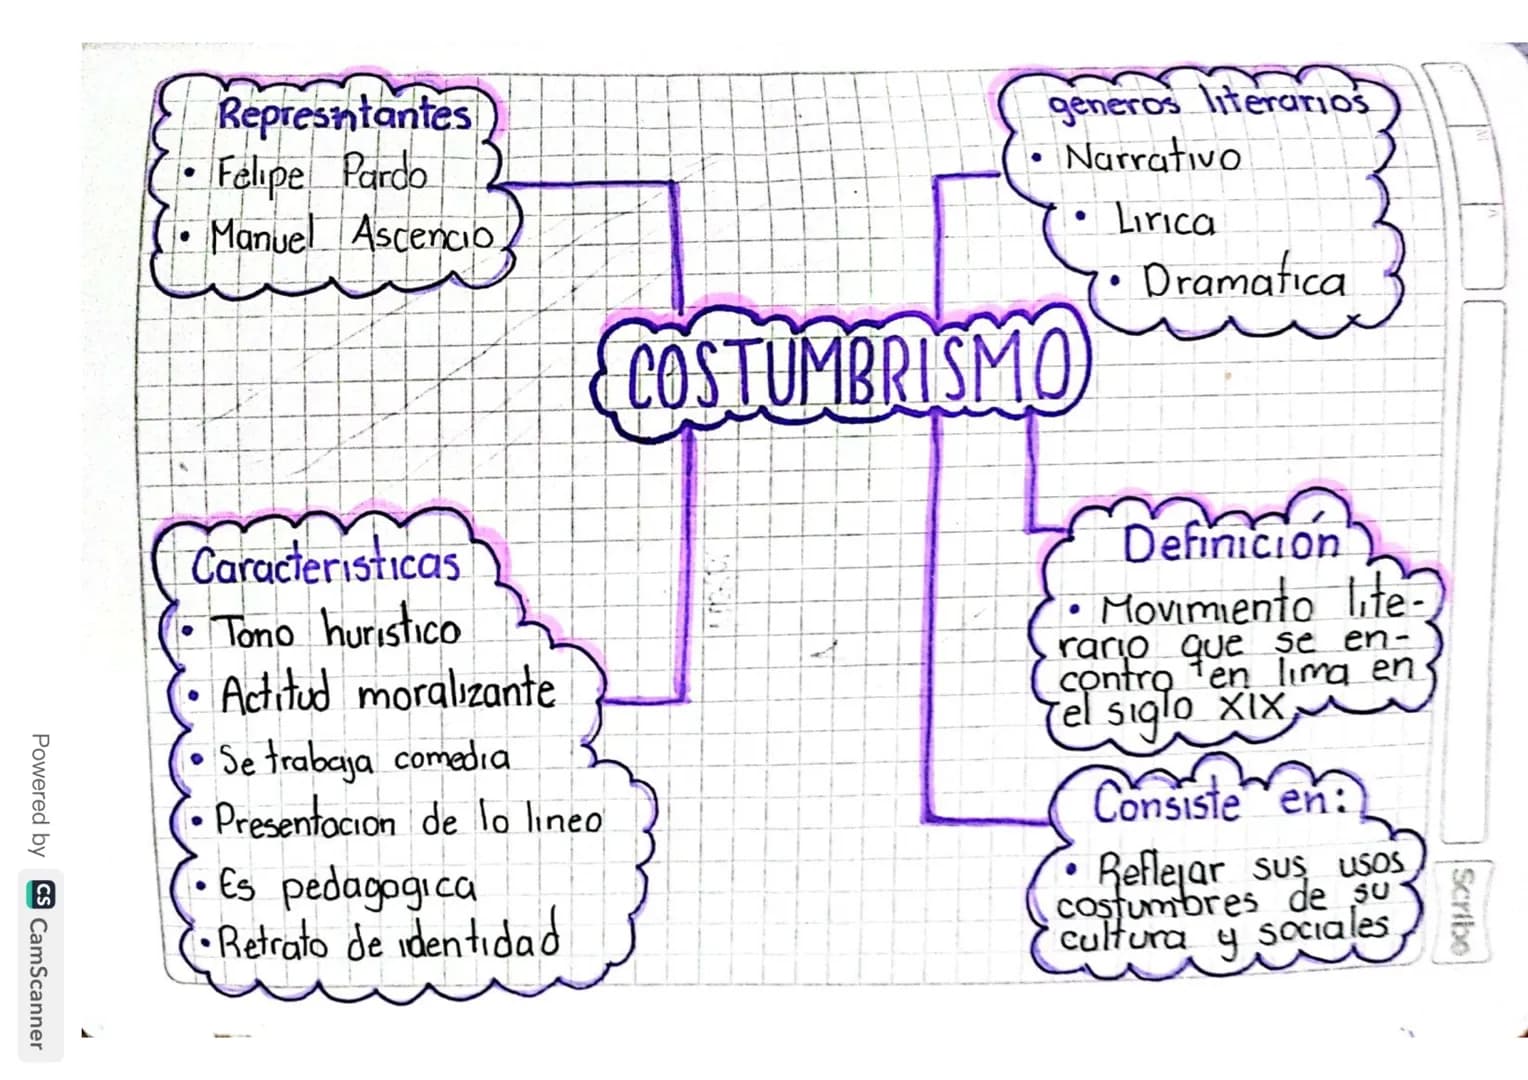 Represntantes
• Felipe Pardo
• Manuel Ascencio
géneros literarios
• Narrativo
• Lirica
• Dramatica
COSTUMBRISMO
Caracteristicas
• Tono huristico
• Actitud moralizante
• Se trabaja comedia
• Presentacion de lo lineo
• Es pedagogica
• Retrato de identidad
Definición
• Movimiento lite-
rario que se en-
contro en lima en
el siglo XIX
Consiste en:
• Reflejar sus usos
costumbres de su
cultura y sociales
Scribe
Powered by CS CamScanner